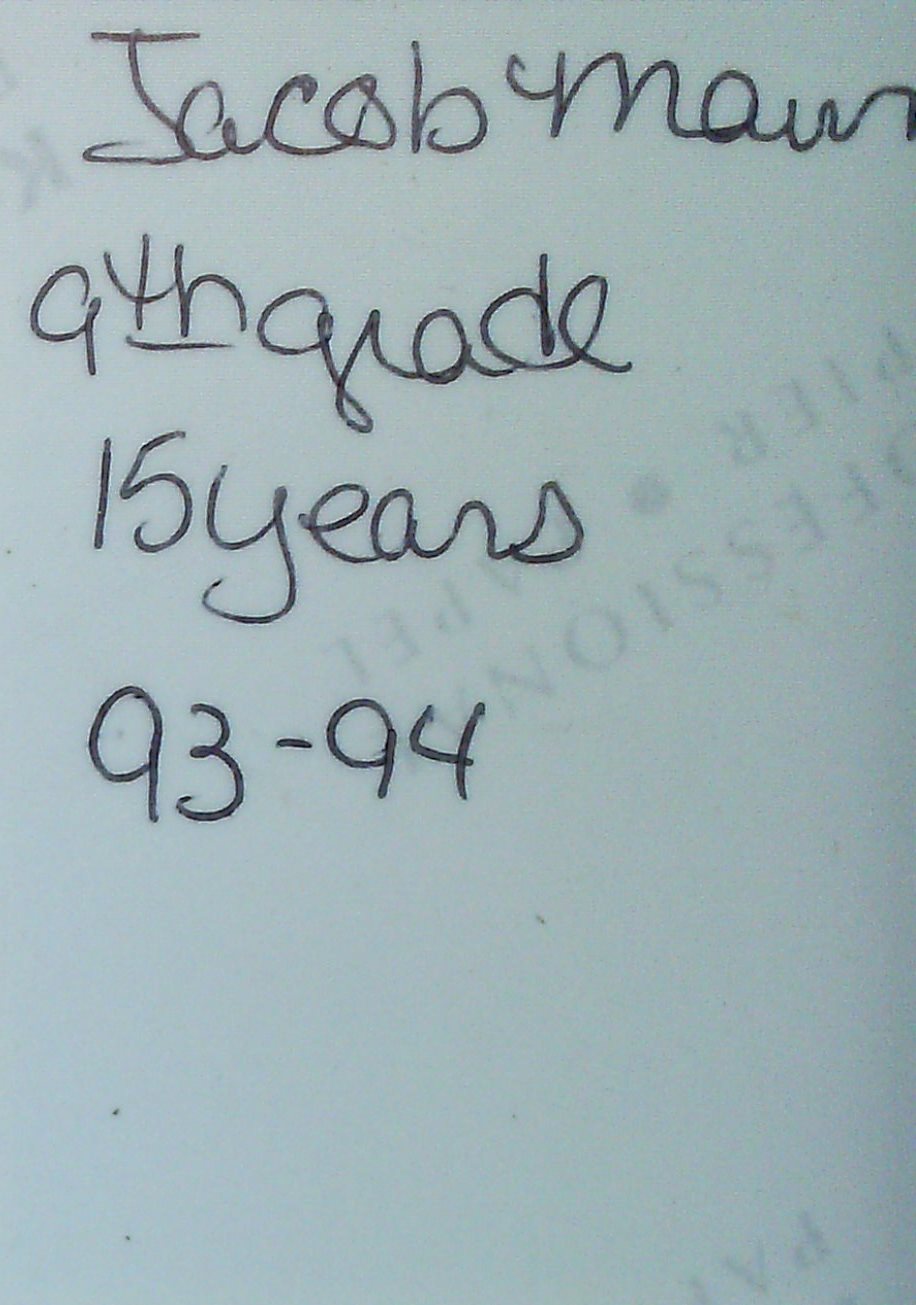 Jacob Maur
9th grade
15 years
93-94